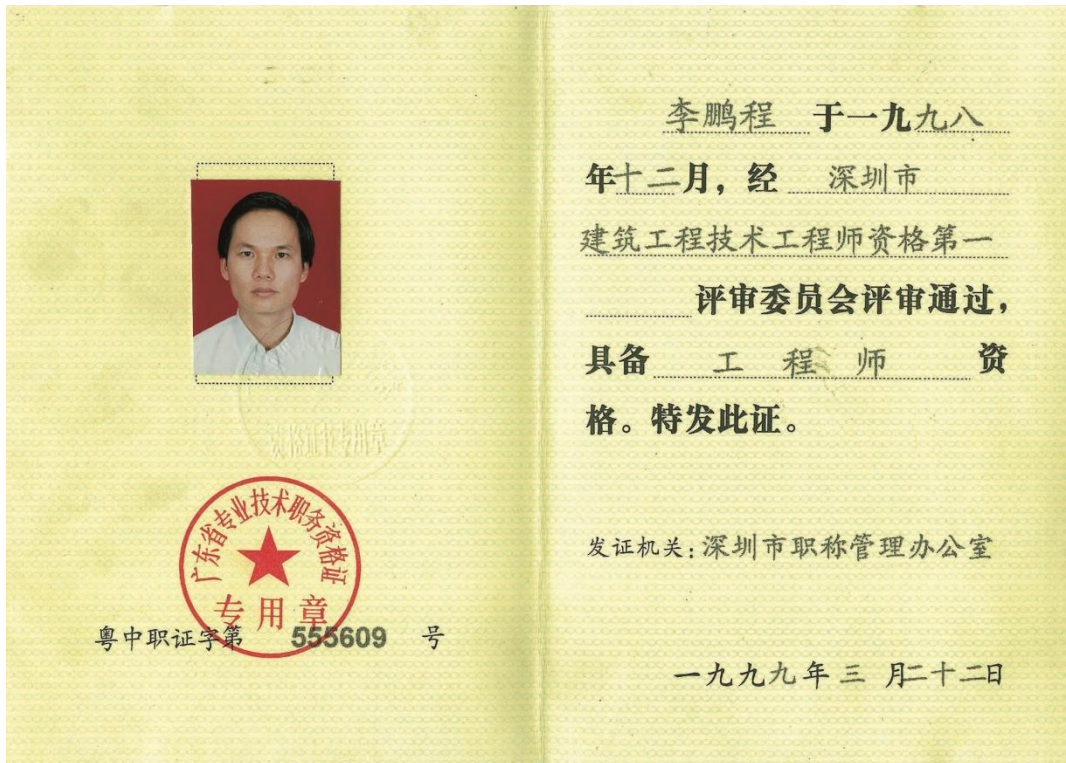 广东省专业技术职务资格证
专用章
粤中职证字第 555609 号
李鹏程 于一九九八
年十二月，经 深圳市
建筑工程技术工程师资格第一
评审委员会评审通过，
具备 工程师 资
格。特发此证。
发证机关：深圳市职称管理办公室
一九九九年三月二十二日